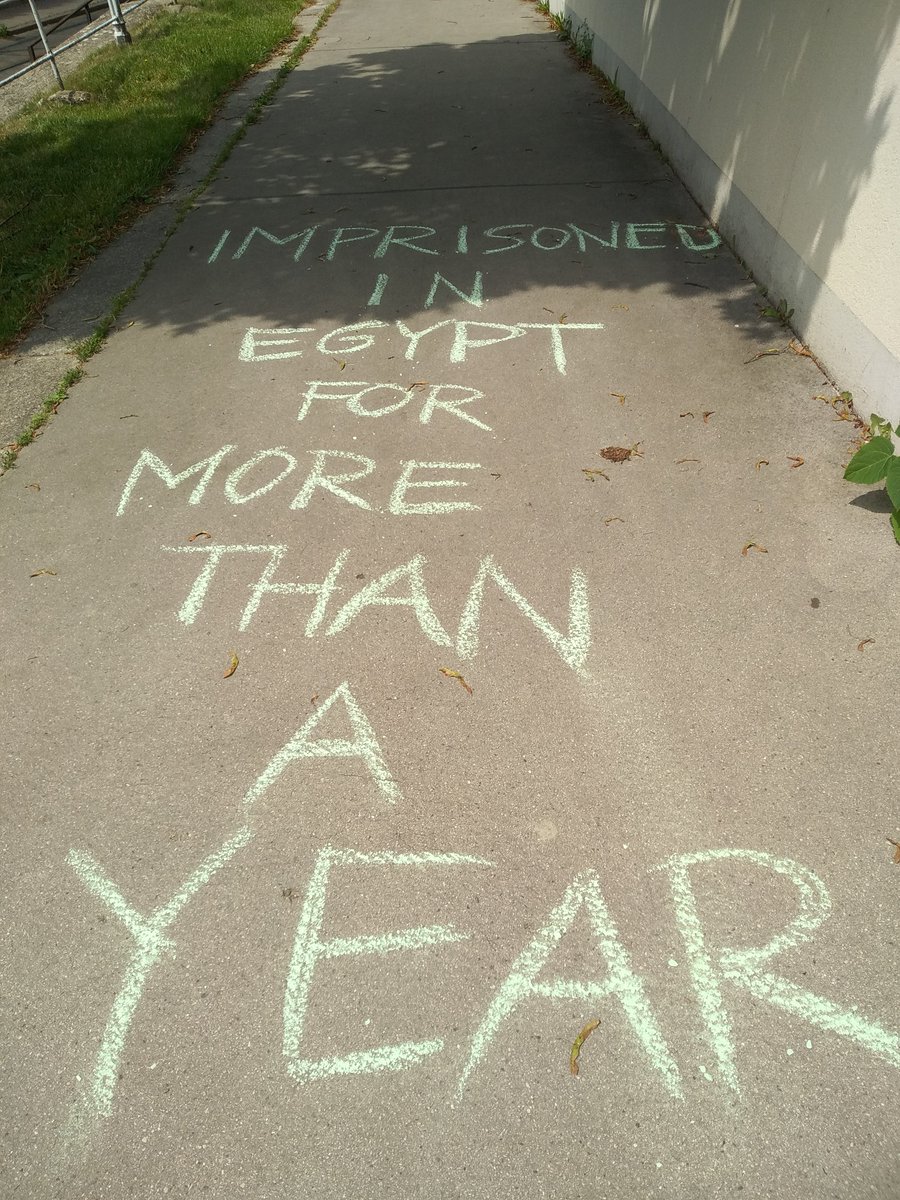 IMPRISONED
IN
EGYPT
FOR
MORE
THAN
A
YEAR